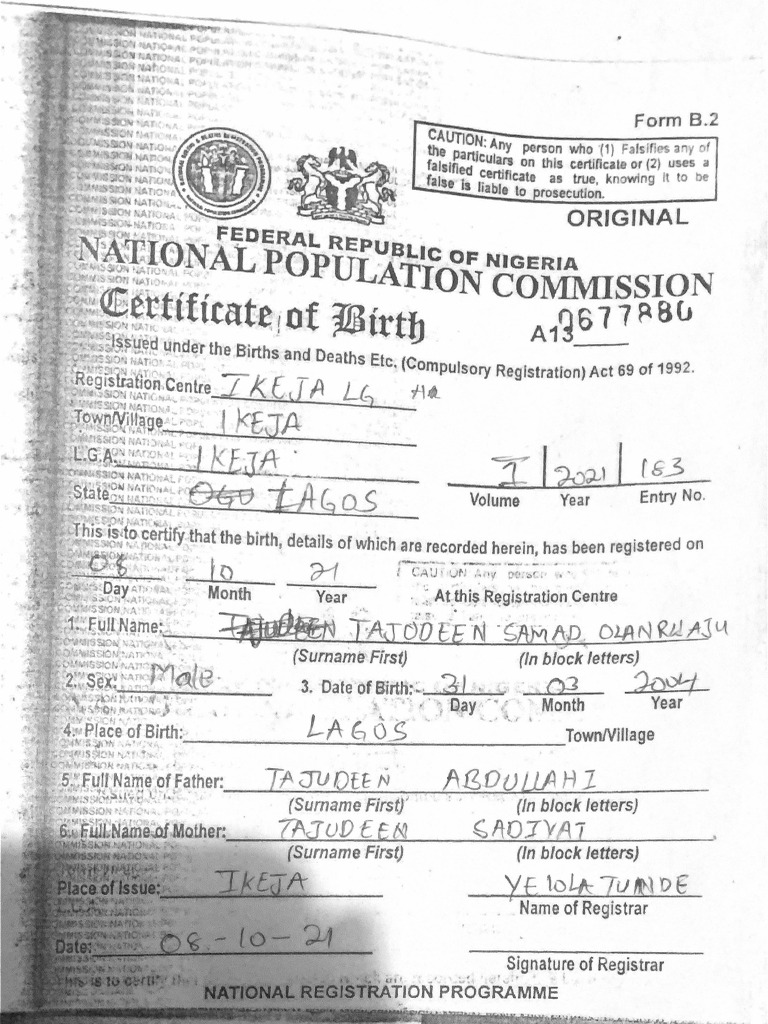 Form B.2
CAUTION: Any person who (1) Falsifies any of
the particulars on this certificate or (2) uses a
falsified certificate as true, knowing it to be
false is liable to prosecution.
ORIGINAL
FEDERAL REPUBLIC OF NIGERIA
NATIONAL POPULATION COMMISSION
Certificate of Birth
A13 0677880
Issued under the Births and Deaths Etc. (Compulsory Registration) Act 69 of 1992.
Registration Centre IKEJA LG HQ
Town/Village IKEJA
L.G.A. IKEJA
State LAGOS
I 2021 183
Volume Year Entry No.
This is to certify that the birth, details of which are recorded herein, has been registered on
08 10 21
Day Month Year At this Registration Centre
1. Full Name: TAJODEEN SAMAD OLANRWAJU
(Surname First) (In block letters)
2. Sex. Male 3. Date of Birth: 31 03 2004
Day Month Year
4. Place of Birth: LAGOS Town/Village
5. Full Name of Father: TAJUDEEN ABDULLAHI
(Surname First) (In block letters)
6. Full Name of Mother: TAJUDEEN SADIYAT
(Surname First) (In block letters)
Place of Issue: IKEJA
Name of Registrar
Date: 08-10-21
Signature of Registrar
NATIONAL REGISTRATION PROGRAMME